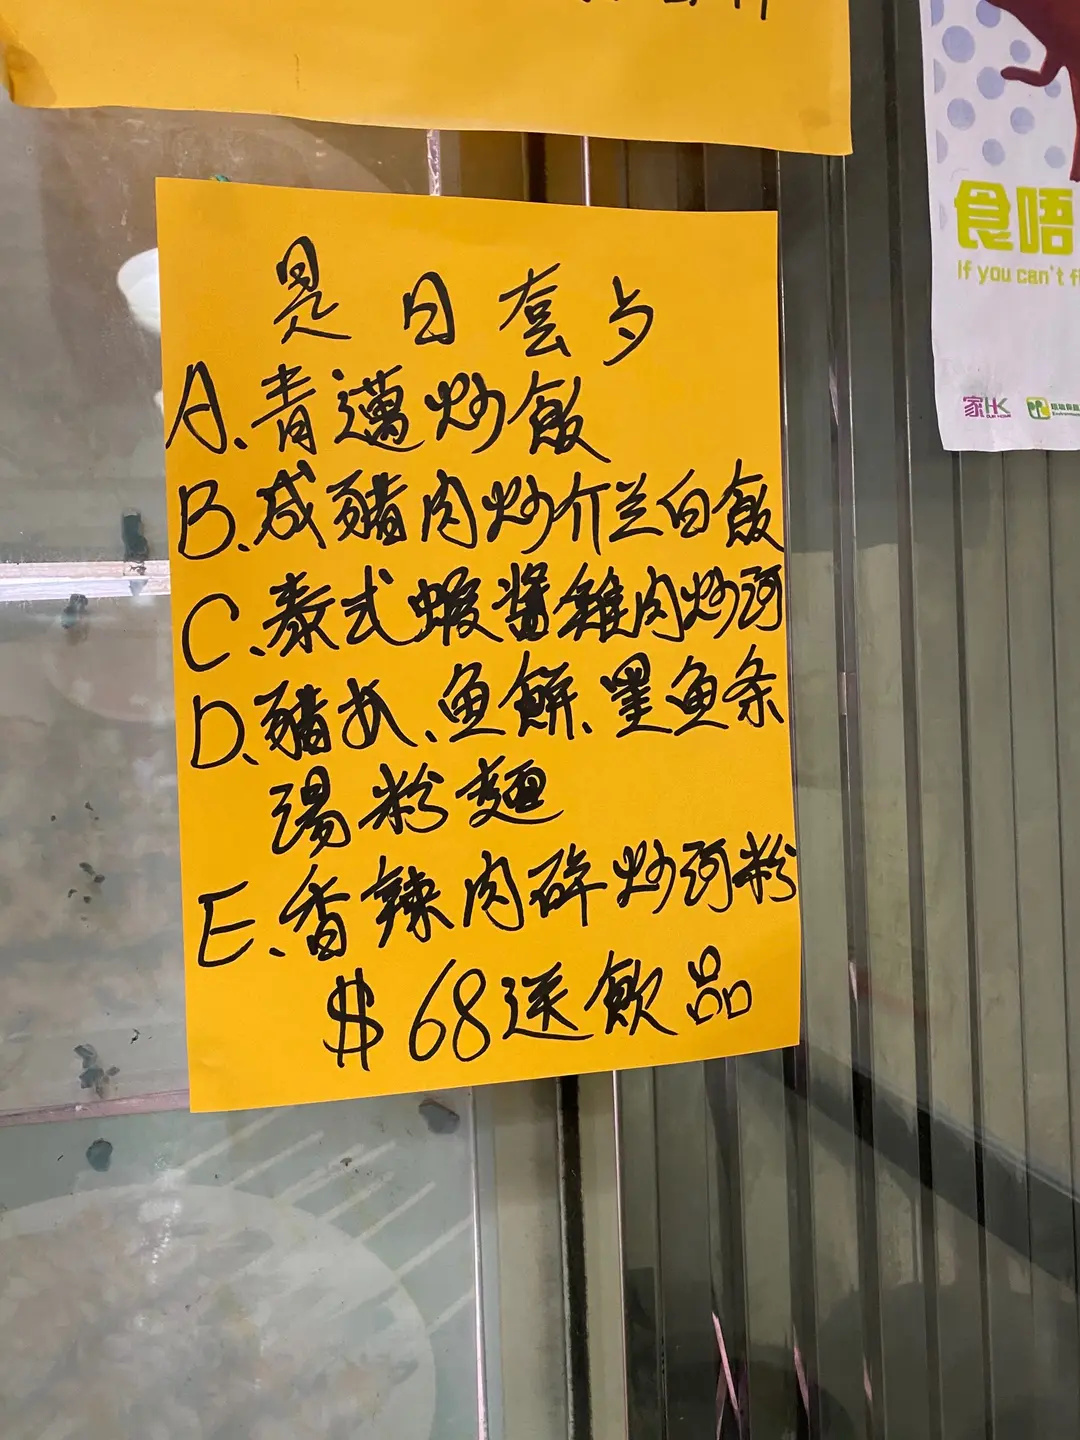 是日套歺
A.青邁炒飯
B.咸豬肉炒介兰白飯
C.泰式蝦醬雞肉炒河
D.豬扒、魚餅、墨魚条
湯粉麵
E.香辣肉碎炒河粉
$68送飲品
食唔
If you can't f
家HK